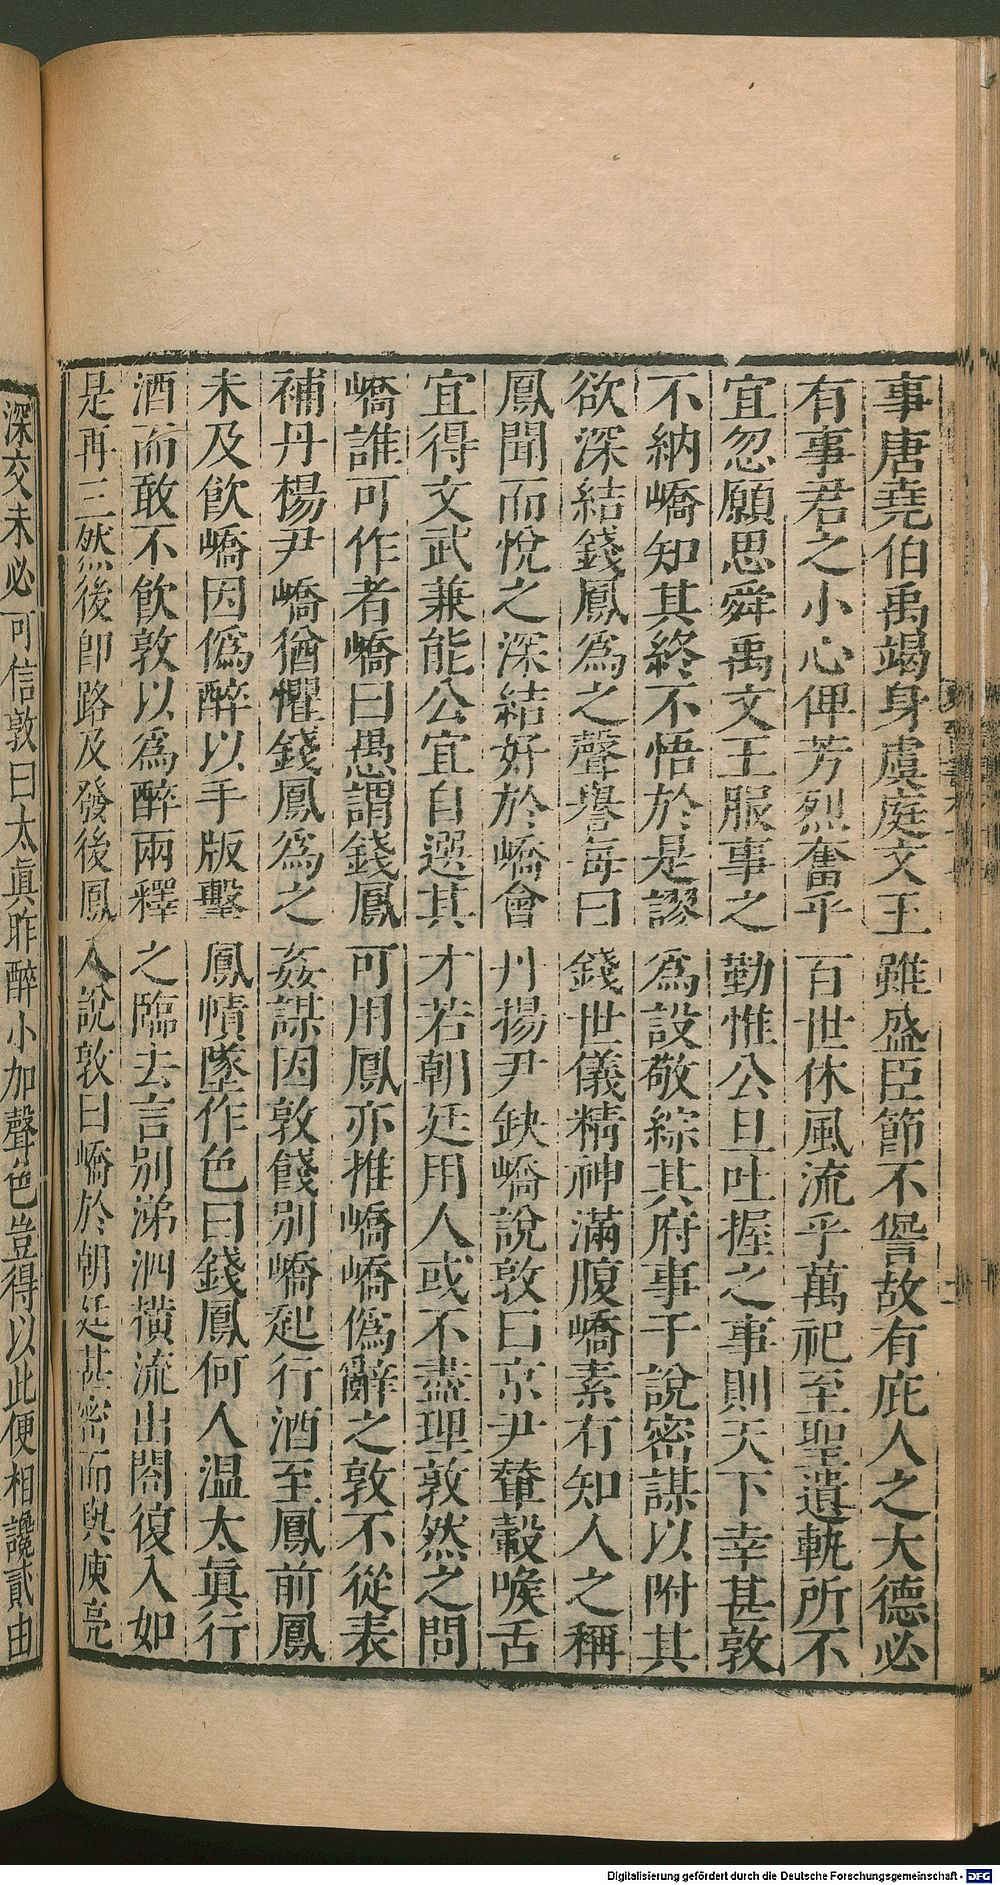 事唐堯伯禹竭身虞庭文王雖盛臣節不諐故有庇人之大德必
有事君之小心俾芳烈奮乎百世休風流乎萬祀至聖遺軌所不
宜忽願思舜禹文王服事之勤惟公旦吐握之事則天下幸甚敦
不納嶠知其終不悟於是謬爲設敬綜其府事干說密謀以附其
欲深結錢鳳爲之聲譽每曰錢世儀精神滿腹嶠素有知人之稱
鳳聞而悅之深結好於嶠會丹揚尹缺嶠說敦曰京尹輦轂喉舌
宜得文武兼能公宜自選其才若朝廷用人或不盡理敦然之問
嶠誰可作者嶠曰愚謂錢鳳可用鳳亦推嶠嶠僞辭之敦不從表
補丹楊尹嶠猶懼錢鳳爲之姦謀因敦餞別嶠起行酒至鳳前鳳
未及飮嶠因僞醉以手版擊鳳幘墜作色曰錢鳳何人温太眞行
酒而敢不飮敦以爲醉兩釋之臨去言別涕泗橫流出閤復入如
是再三然後卽路及發後鳳入說敦曰嶠於朝廷甚密而與庾亮
深交未必可信敦曰太眞昨醉小加聲色豈得以此便相讒貳由
Digitalisierung gefördert durch die Deutsche Forschungsgemeinschaft - DFG